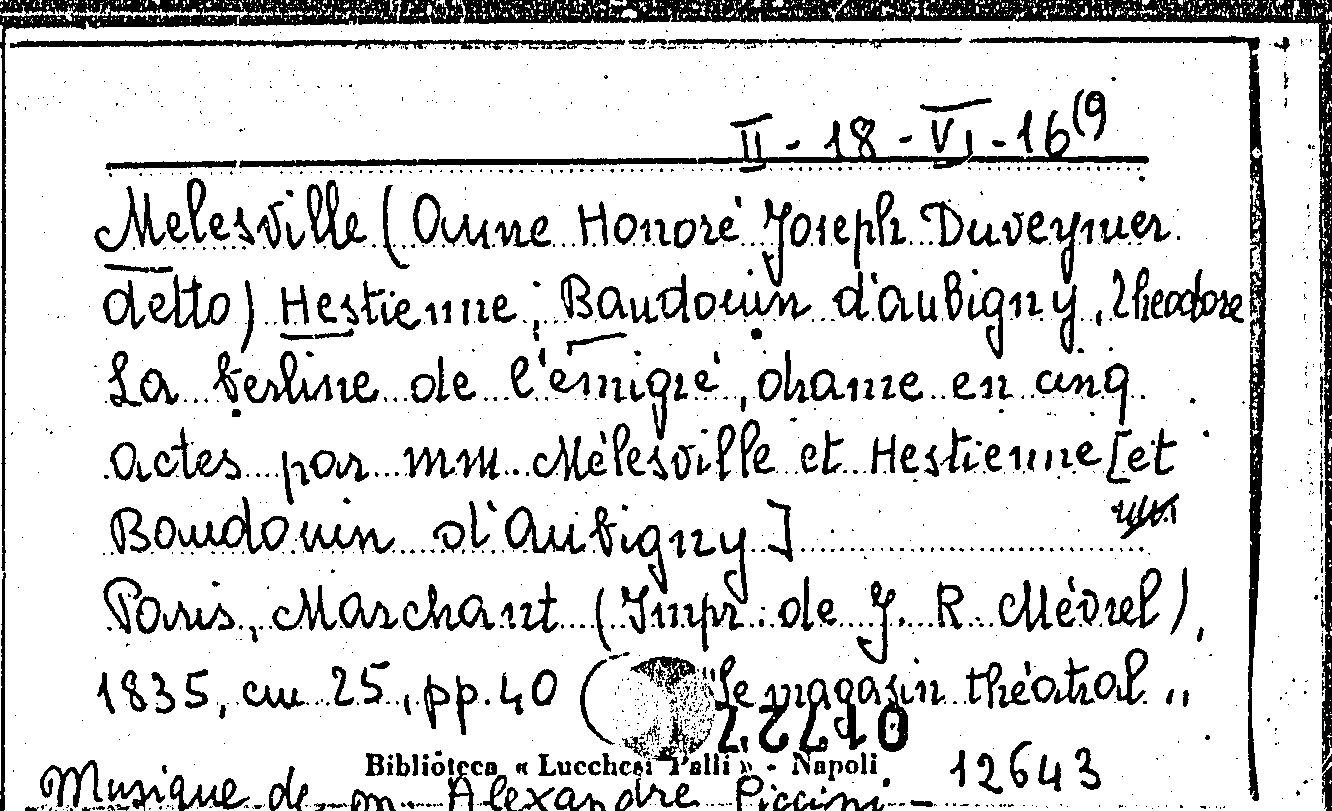 II - 18 - VI - 16(9
Melesville (Anne Honoré Joseph Duveyrier
detto) Hestienne; Baudouin d'Aubigny, Theodore
La berline de l'émigré, drame en cinq
actes par MM. Mélesville et Hestienne [et
Baudouin d'Aubigny]
Paris, Marchant (Impr. de J. R. Mévrel),
1835, cm 25, pp. 40 ("Le magasin théatral"
01722
Biblioteca « Lucchesi Palli » - Napoli 12643
Musique de m. Alexandre Piccini -